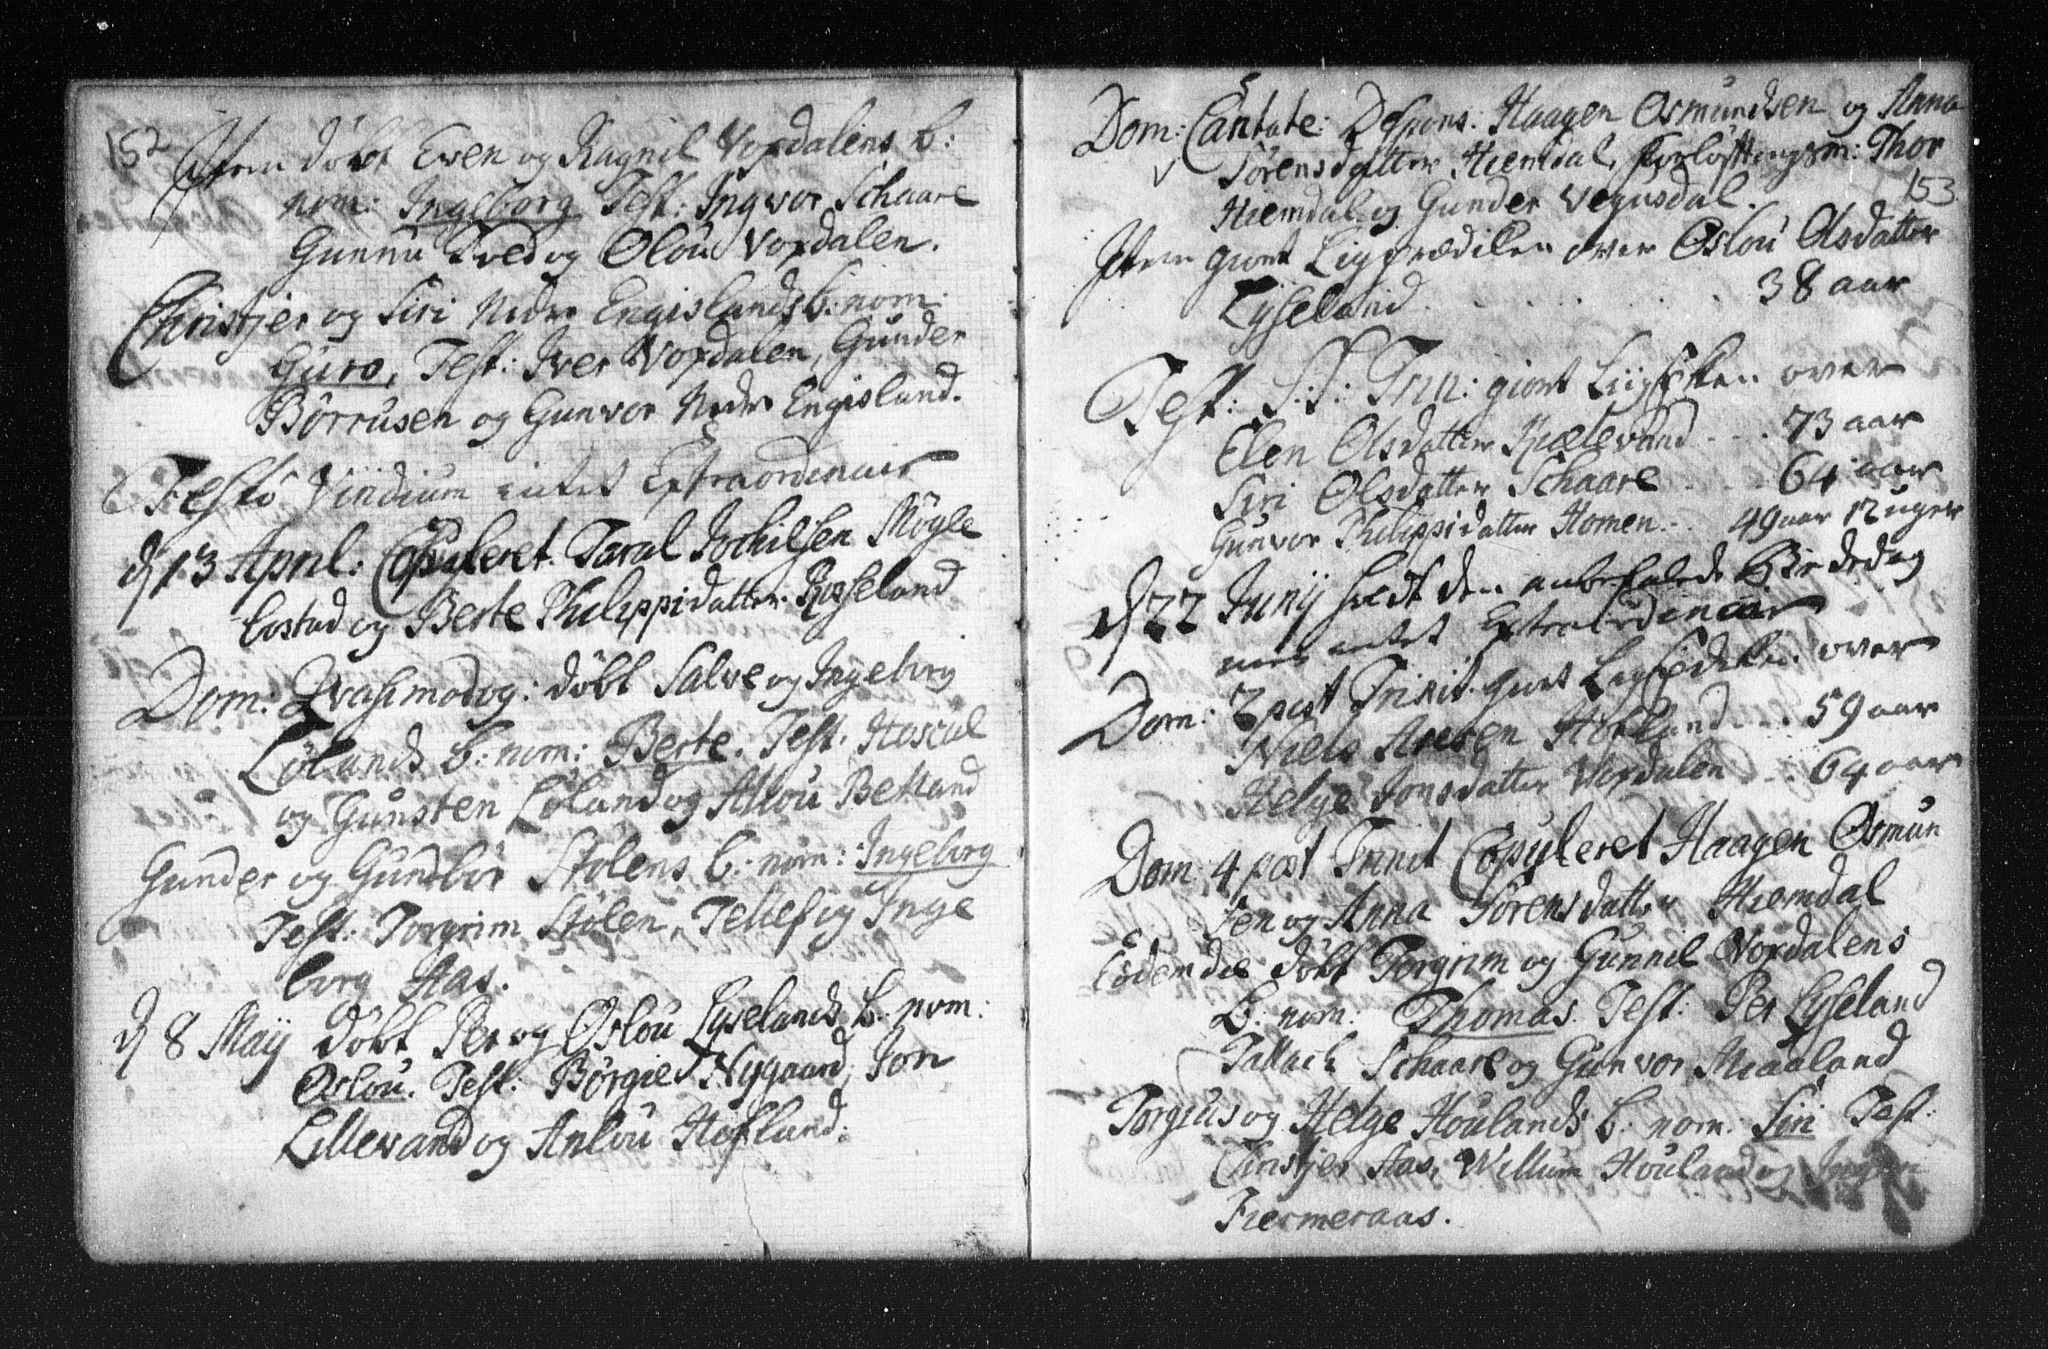 152
Item døbt Even og Ragnil Vordalens b:
nom: Ingeborg Test: Ingvor Schaare
Gunnu Tved og Olou Vordalen.
Christjer og Siri Nedre Engislands b: nom:
Guro, Test: Iver Vordalen, Gunder
Børrusen og Gunvor Nedre Engisland.
Festo Viridium intet Extraordinair
d 13 April: Copuleret. Taral
Lostad og Berte Philippidatter Risseland
Dom: Qvasimodog: døbt Salve og Ingeborg
Lølands b: nom: Berte. Test.
og Gunsten Løland og Aslou
Gunder og Gundbor Stølens b: nom: Ingeborg
Test: Torgrim Stølen, Tellef og Inge
borg Aas.
d 8 Maij døbt Per og Oslou Lyselands b: nom:
Oslou. Test: Børgie Nygaard, Jon
Lillevand og Anlou
Dom: Cantate: Despons: Haagen Osmundsen og Anna
Sørensdatter Hiemdal, Forløftningsm: Thor
153
Hiemdal og Gunder Vegusdal.
Item giort Ligprædiken over Oslou Olsdatter
Lyseland . . . . . . 38 aar
Fest: S. S: Trin: giort over
Elen Olsdatter Kietevand . . . 73 aar
Siri Olsdatter Schaare . . . 64 aar
Gunvor Philippidatter Homen . . 49 aar 12 uger
d 22 Junij holdt den anbefalede Bededag
men intet Extraordinair
Dom: 2 post Trinit. giort over
Niels . . . 59 aar
Helge Jonsdatter Vordalen . . 64 aar
Dom 4 post Trinit Copuleret Haagen Osmun
sen og Anna Sørensdatter Hiemdal
Eodem die døbt Torgrim og Gunnil Vordalens
b: nom: Thomas. Test: Per Lyseland
Tallach Schaare og Gunvor Miaaland
Torgius og Helge Houlands b: nom. Siri Test:
Cristjer Aas, Willum Houland og
Fiermeraas.